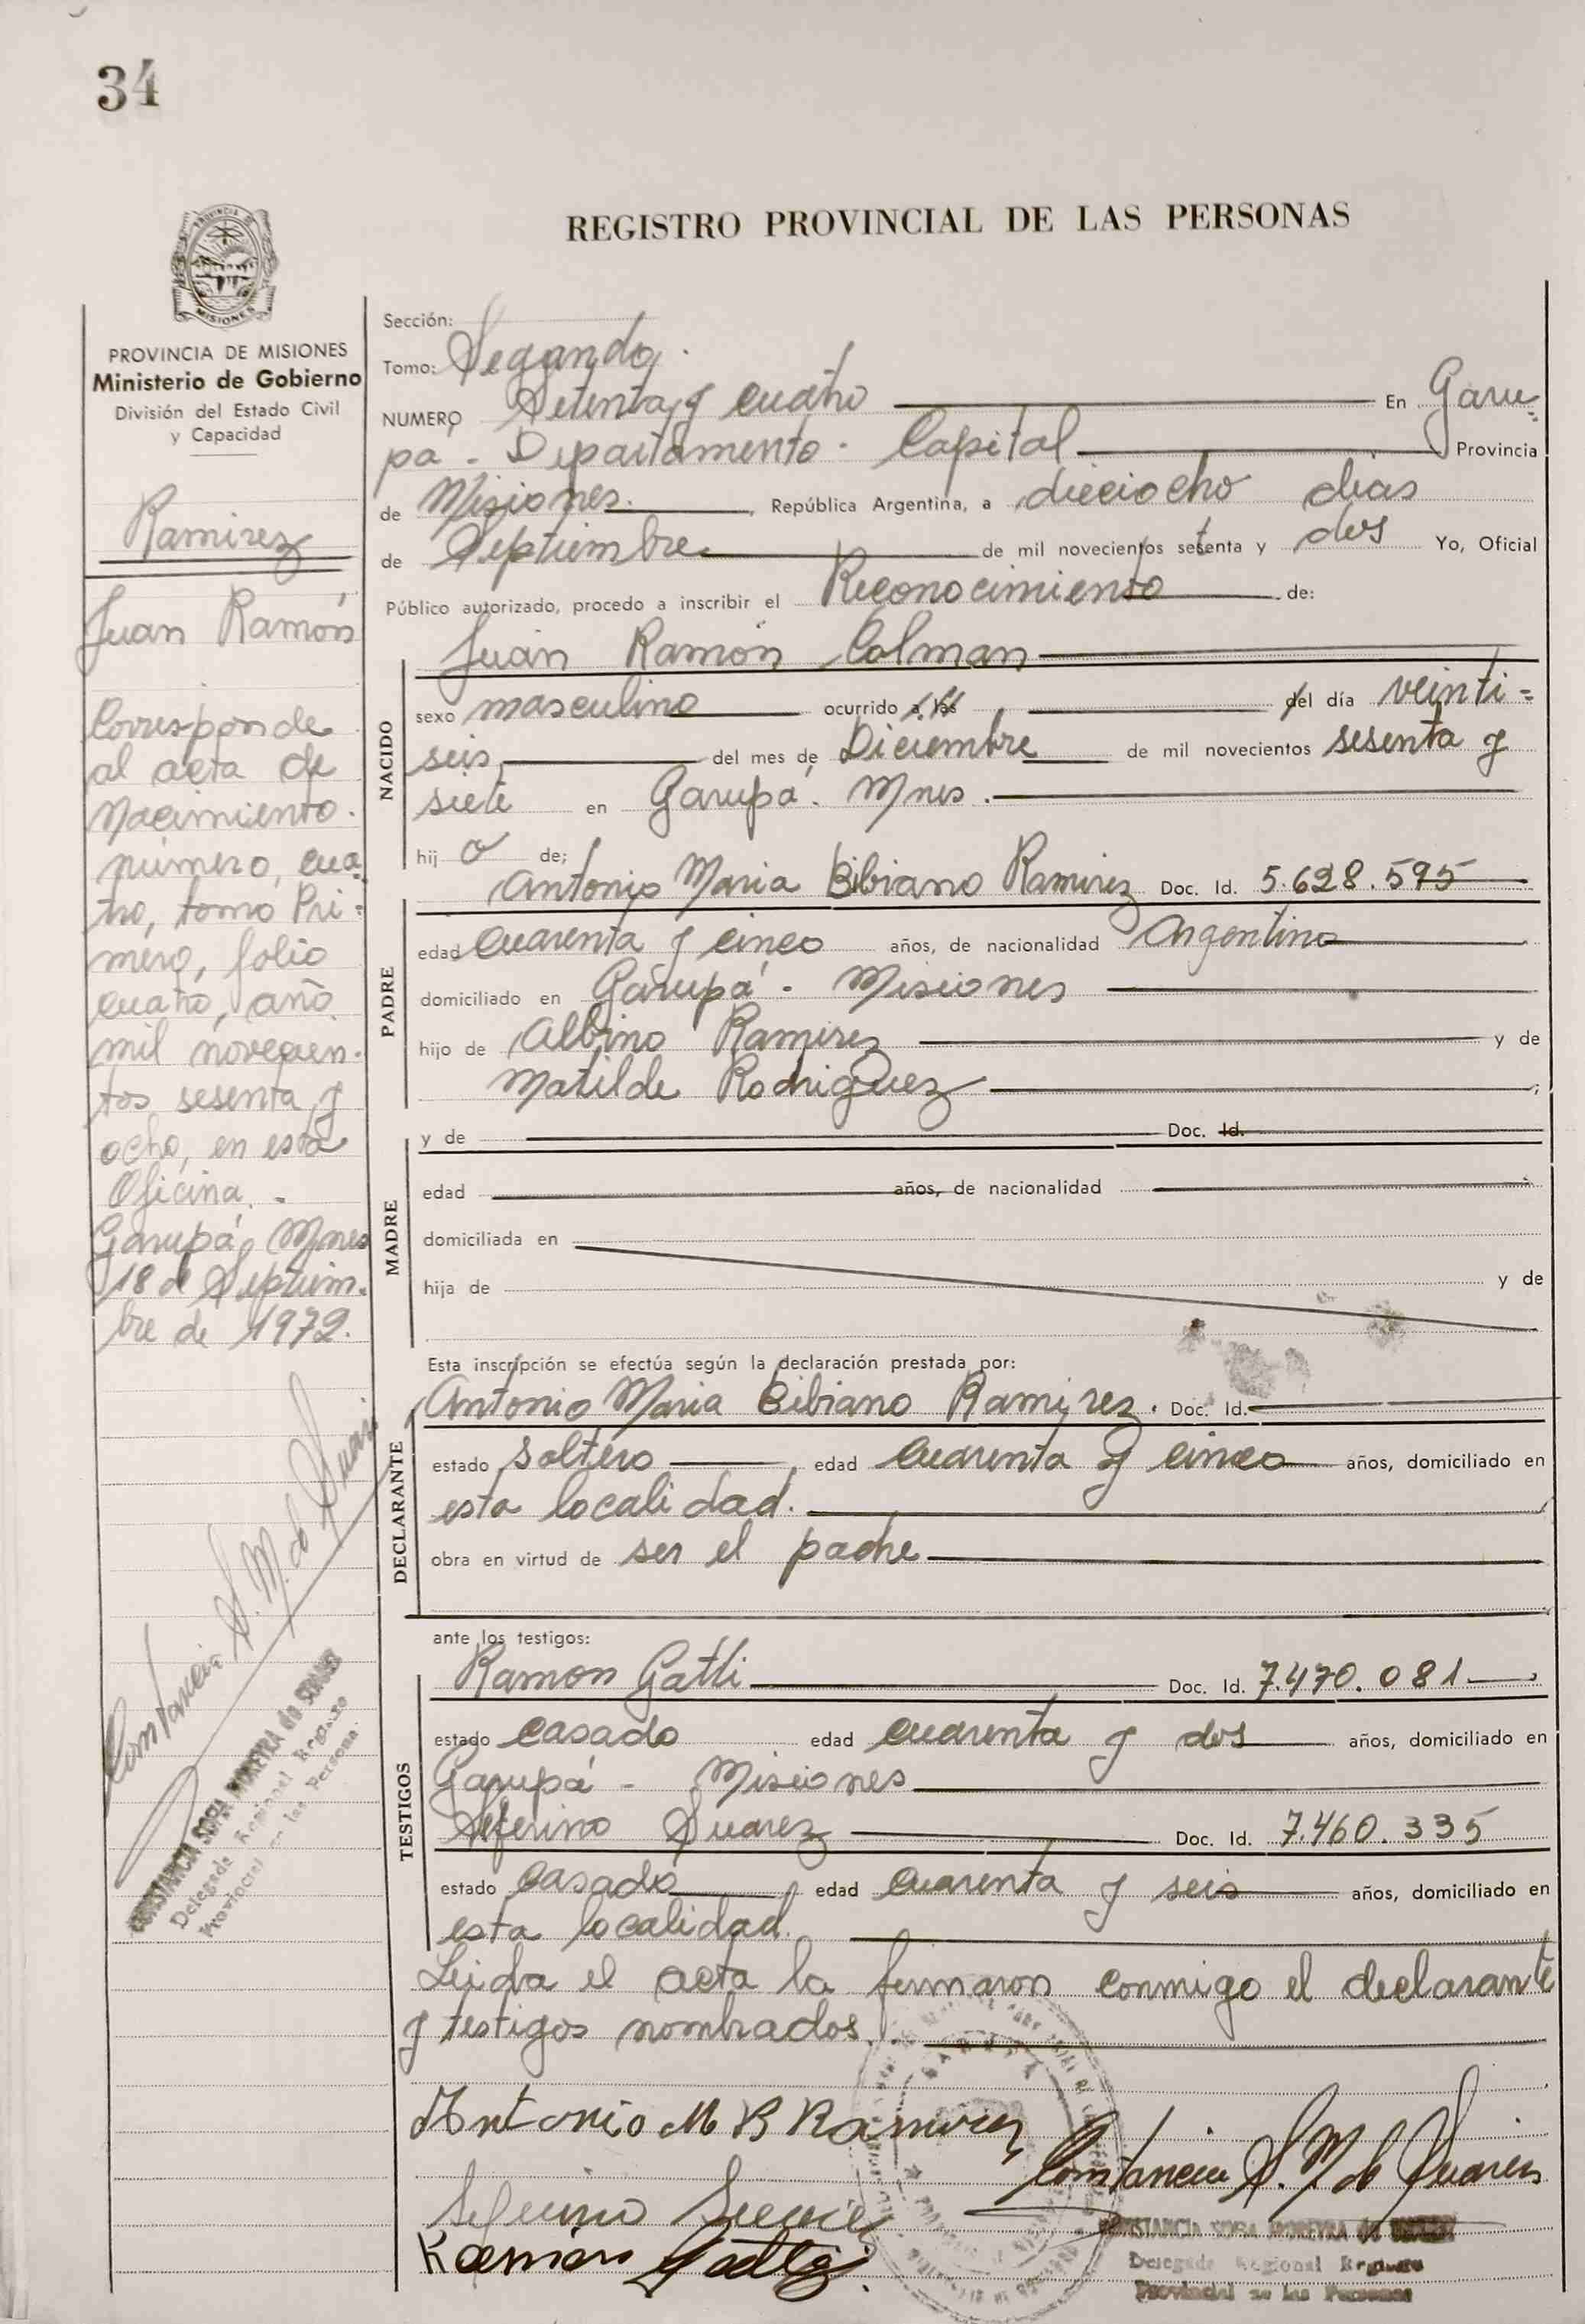 34
REGISTRO PROVINCIAL DE LAS PERSONAS
MISIONES
PROVINCIA DE MISIONES
Ministerio de Gobierno
División del Estado Civil
y Capacidad
Ramirez
Juan Ramón
Corresponde
al acta de
Nacimiento.
número, cua-
tro, tomo Pri-
mero, folio
cuatro, año
mil novecien-
tos sesenta y
ocho, en esta
Oficina.-
Garupá, Mnes
18 de Septiem-
bre de 1972.
Constancia S. M. de Suarez
CONSTANCIA SOSA MOREYRA de SUAREZ
Delegada Regional Registro
Provincial de las Personas
Sección:
Tomo: Segundo.
NUMERO Setenta y cuatro En Garu-
pá - Departamento - Capital Provincia
de Misiones. , República Argentina, a dieciocho dias
de Septiembre de mil novecientos setenta y dos Yo, Oficial
Público autorizado, procedo a inscribir el Reconocimiento de:
Juan Ramón Colman
NACIDO
sexo masculino ocurrido a las del día veinti=
seis del mes de Diciembre de mil novecientos sesenta y
siete en Garupá. Mnes.
hij o de;
PADRE
Antonio Maria Bibiano Ramirez Doc. Id. 5.628.595
edad cuarenta y cinco años, de nacionalidad Argentina
domiciliado en Garupá - Misiones
hijo de Albino Ramirez y de
Matilde Rodriguez ;
MADRE
y de Doc. Id.
edad años, de nacionalidad
domiciliada en
hija de y de
Esta inscripción se efectúa según la declaración prestada por:
DECLARANTE
Antonio Maria Bibiano Ramirez. Doc. Id.
estado soltero , edad cuarenta y cinco años, domiciliado en
esta localidad.
obra en virtud de ser el padre
ante los testigos:
TESTIGOS
Ramon Gatti Doc. Id. 7.470.081
estado casado edad cuarenta y dos años, domiciliado en
Garupá - Misiones
Seferino Suarez Doc. Id. 7.460.335
estado casado , edad cuarenta y seis años, domiciliado en
esta localidad.
Leida el acta la firmaron conmigo el declarante
y testigos nombrados.
Antonio M B Ramirez
Constancia S. M. de Suarez
Seferino Suarez
Ramon Gatti
CONSTANCIA SOSA MOREYRA de SUAREZ
Delegada Regional Registro
Provincial de las Personas